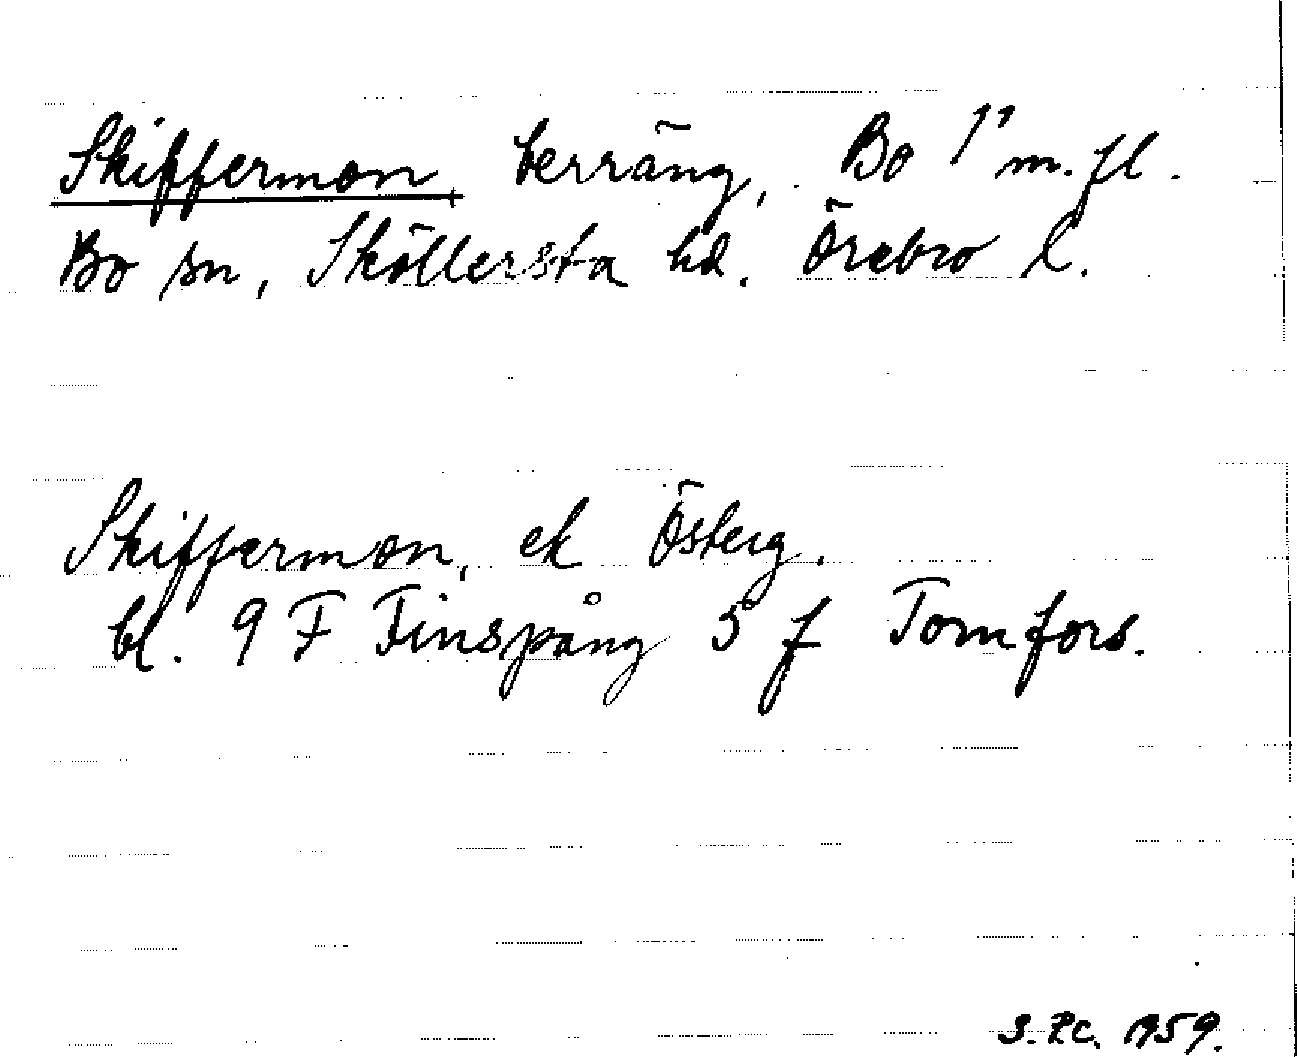 Skiffermon, terräng, Bo 1¹¹ m.fl.
Bo sn, Sköllersta hd. Örebro l.
Skiffermon, ek Österg.
bl. 9 F Finspång 5 f Tomfors.
S.P.C. 1959.